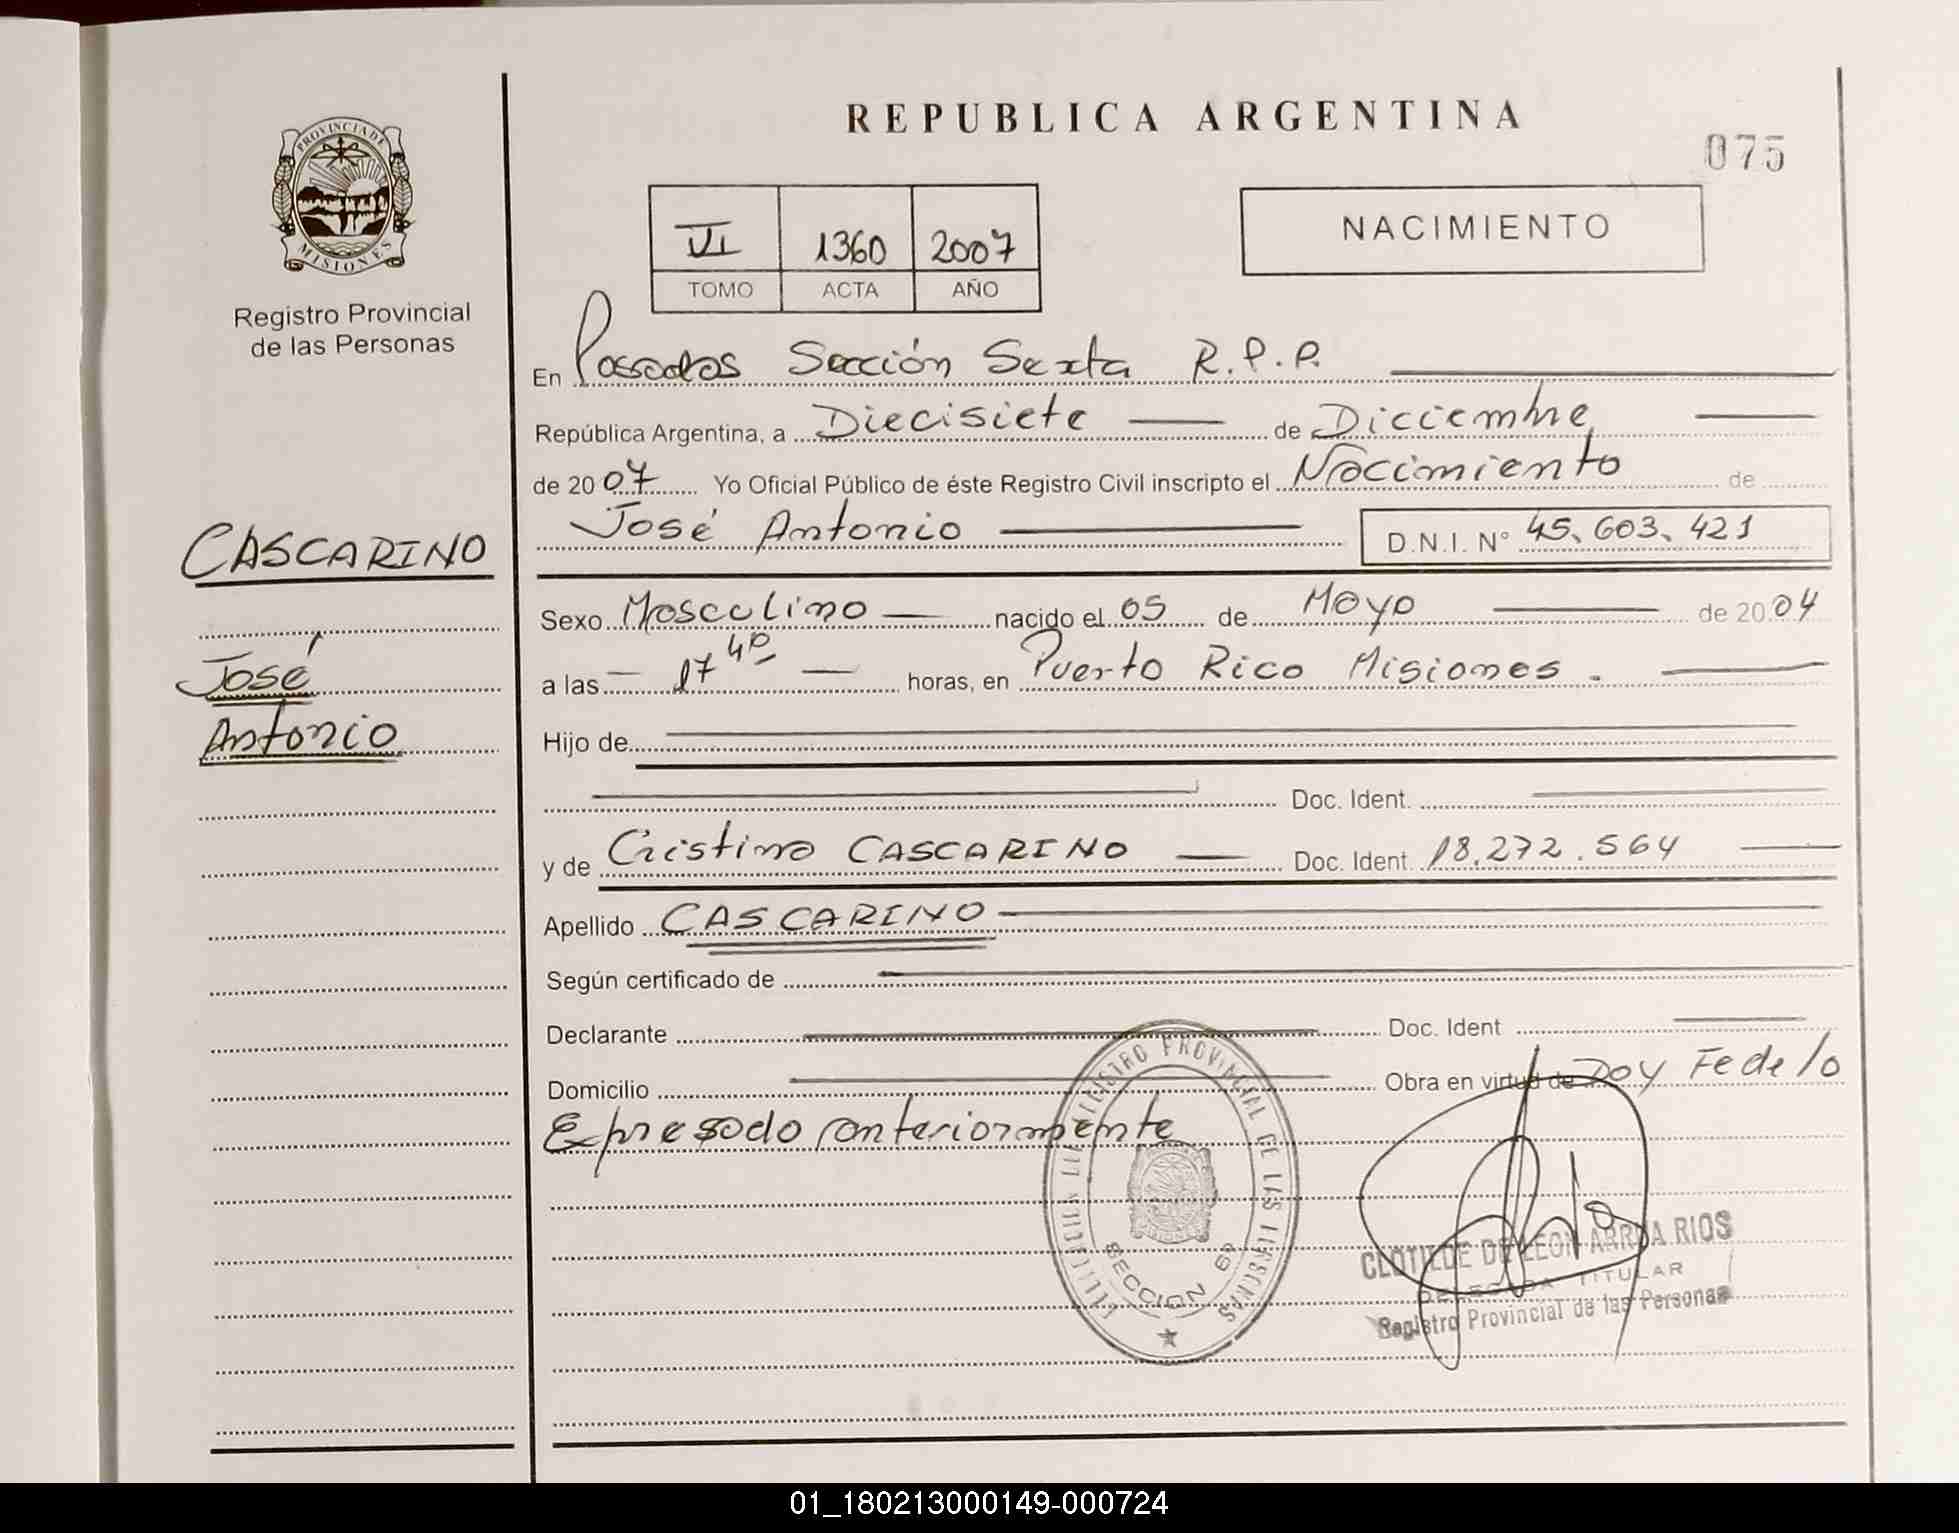 REPUBLICA ARGENTINA
075
PROVINCIA DE
MISIONES
Registro Provincial
de las Personas
VI 1360 2007
TOMO ACTA AÑO
NACIMIENTO
En Posadas Sección Sexta R.P.P.
República Argentina, a Diecisiete de Diciembre
de 2007 Yo Oficial Público de éste Registro Civil inscripto el Nacimiento de
José Antonio D.N.I. Nº 45.603.421
CASCARINO
José
Antonio
Sexo Masculino nacido el 05 de Mayo de 2004
a las 17 40 horas, en Puerto Rico Misiones.
Hijo de
Doc. Ident.
y de Cristina CASCARINO Doc. Ident. 18.272.564
Apellido CASCARINO
Según certificado de
Declarante Doc. Ident
Domicilio Obra en virtud de Doy Fe de lo
Expresado anteriormente
REGISTRO PROVINCIAL DE LAS PERSONAS
SECCION 6ª
CLOTILDE DE LEON ARRUA RIOS
DELEGADA TITULAR
Registro Provincial de las Personas
01_180213000149-000724